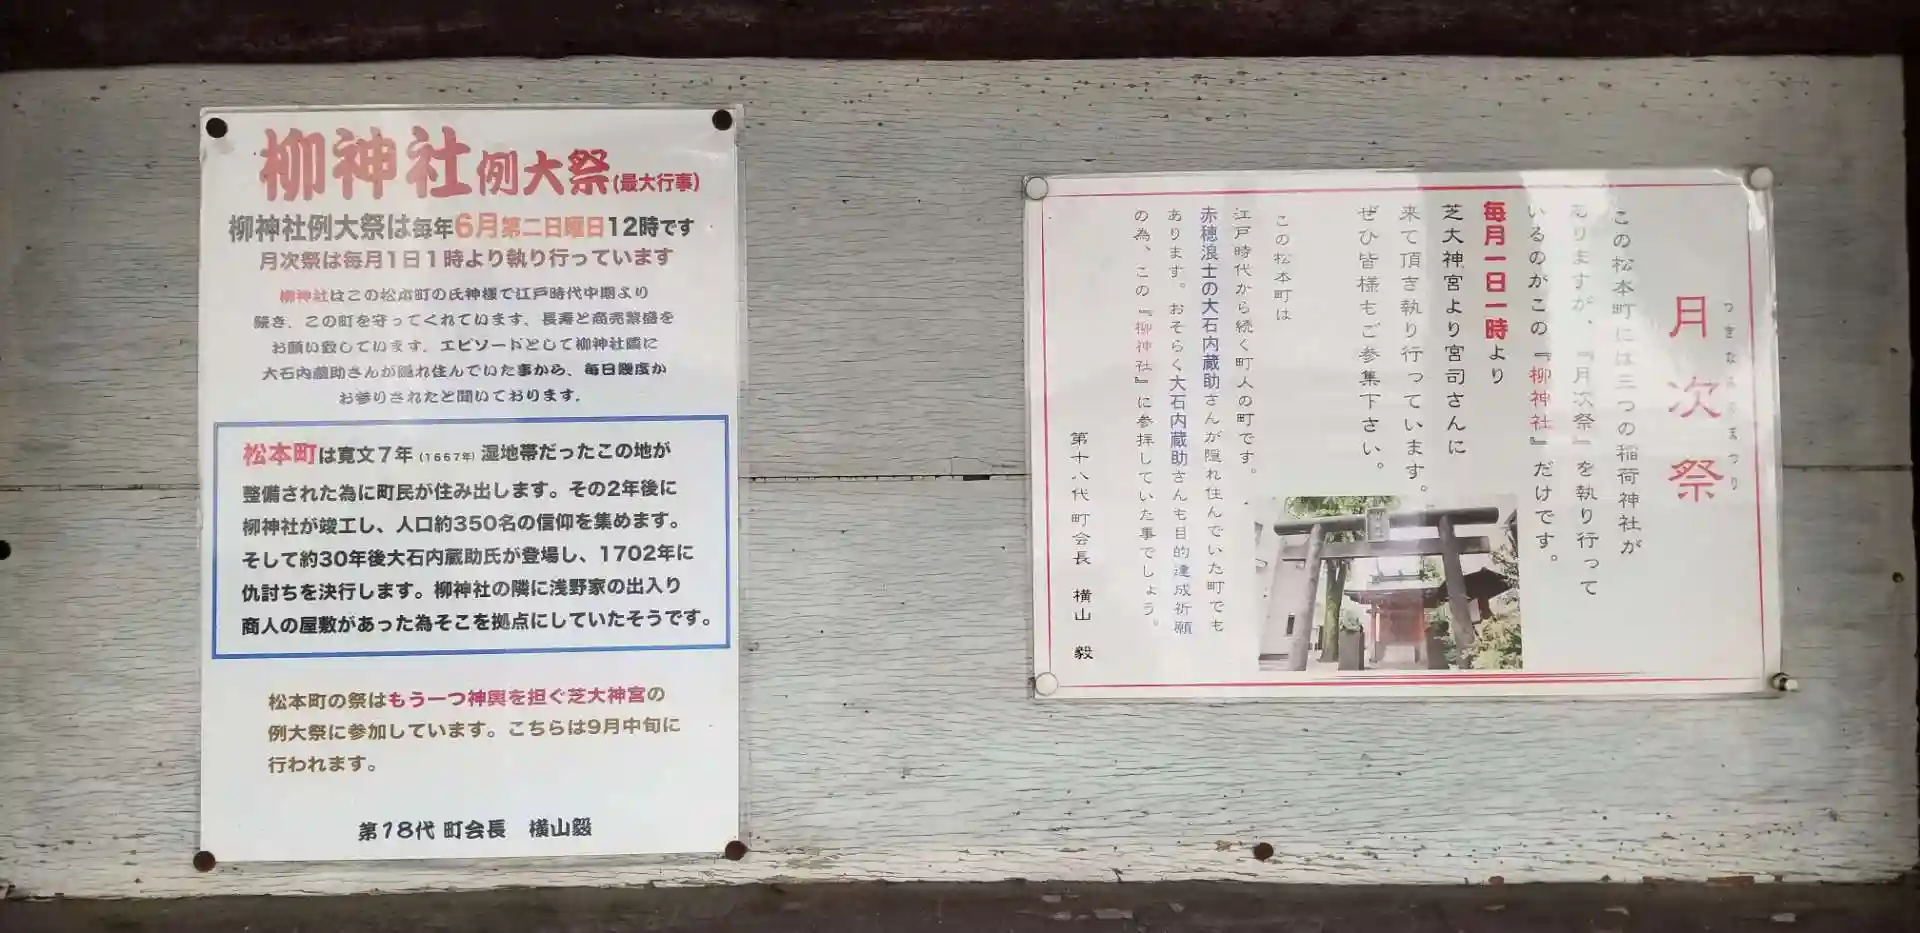 柳神社例大祭(最大行事)
柳神社例大祭は毎年6月第二日曜日12時です
月次祭は毎月1日1時より執り行っています
柳神社はこの松本町の氏神様で江戸時代中期より
続き、この町を守ってくれています。長寿と商売繁盛を
お願い致しています。エピソードとして柳神社隣に
大石内蔵助さんが隠れ住んでいた事から、毎日幾度か
お参りされたと聞いております。
松本町は寛文7年(1667年)湿地帯だったこの地が
整備された為に町民が住み出します。その2年後に
柳神社が竣工し、人口約350名の信仰を集めます。
そして約30年後大石内蔵助氏が登場し、1702年に
仇討ちを決行します。柳神社の隣に浅野家の出入り
商人の屋敷があった為そこを拠点にしていたそうです。
松本町の祭はもう一つ神輿を担ぐ芝大神宮の
例大祭に参加しています。こちらは9月中旬に
行われます。
第18代 町会長 横山毅
つきなみまつり
月次祭
この松本町には三つの稲荷神社が
ありますが、『月次祭』を執り行って
いるのがこの『柳神社』だけです。
毎月一日一時より
芝大神宮より宮司さんに
来て頂き執り行っています。
ぜひ皆様もご参集下さい。
この松本町は
江戸時代から続く町人の町です。
赤穂浪士の大石内蔵助さんが隠れ住んでいた町でも
あります。おそらく大石内蔵助さんも目的達成祈願
の為、この『柳神社』に参拝していた事でしょう。
第十八代 町会長 横山 毅